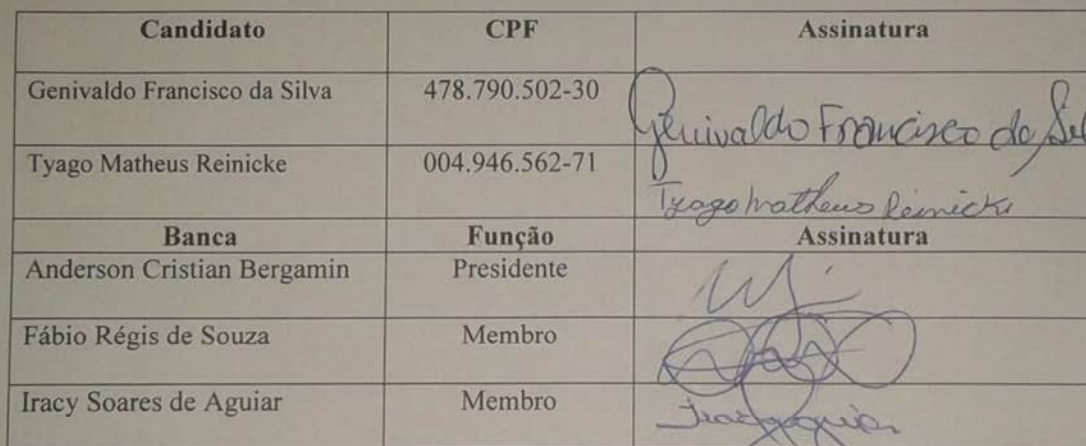 Candidato CPF Assinatura
Genivaldo Francisco da Silva 478.790.502-30 Genivaldo Francisco da Sil
Tyago Matheus Reinicke 004.946.562-71 Tyago Matheus Reinicke
Banca Função Assinatura
Anderson Cristian Bergamin Presidente
Fábio Régis de Souza Membro
Iracy Soares de Aguiar Membro